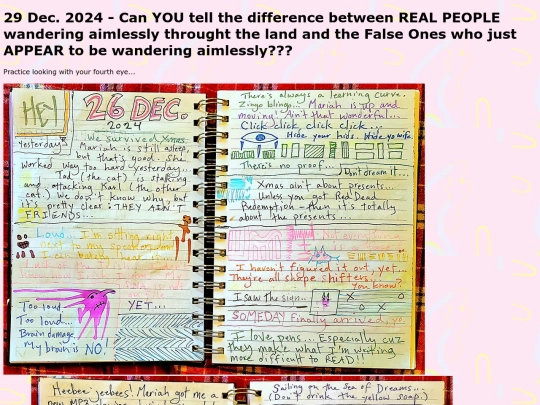 29 Dec. 2024 - Can YOU tell the difference between REAL PEOPLE
wandering aimlessly throught the land and the False Ones who just
APPEAR to be wandering aimlessly???
Practice looking with your fourth eye...
HEY
26 DEC.
2024
We survived Xmas
Yesterday
Mariah is still asleep,
but that's good. She
worked way too hard yesterday...
Tod (the cat) is stalking
and attacking Karl (the other
cat.) We don't know why, but
it's pretty clear: THEY AIN'T
FRIENDS...
Loud... I'm sitting right
next to my speakers and
I can barely hear it...
Too loud...
Too loud...
Brain damage.
My brain is NO!
YET...
There's always a learning curve.
Zingo blingo... Mariah is up and
moving. Ain't that wonderful...
Click click, click click...
Hide your kids. Hide yo wife.
There's no proof...
Don't dream it...
Xmas ain't about presents...
Unless you got Red Dead
Redemption - then it's totally
about the presents...
I haven't figured it out, yet...
They're all shape shifters...
You know?
I saw the sign...
X O
O X
SOMEDAY finally arrived, yo
I love pens... Especially cuz
they make what I'm writing
more difficult to READ!!
Heebee jeebees! Mariah got me a
new MP3
Sailing on the Sea of Dreams...
(Don't drink the yellow soap.)